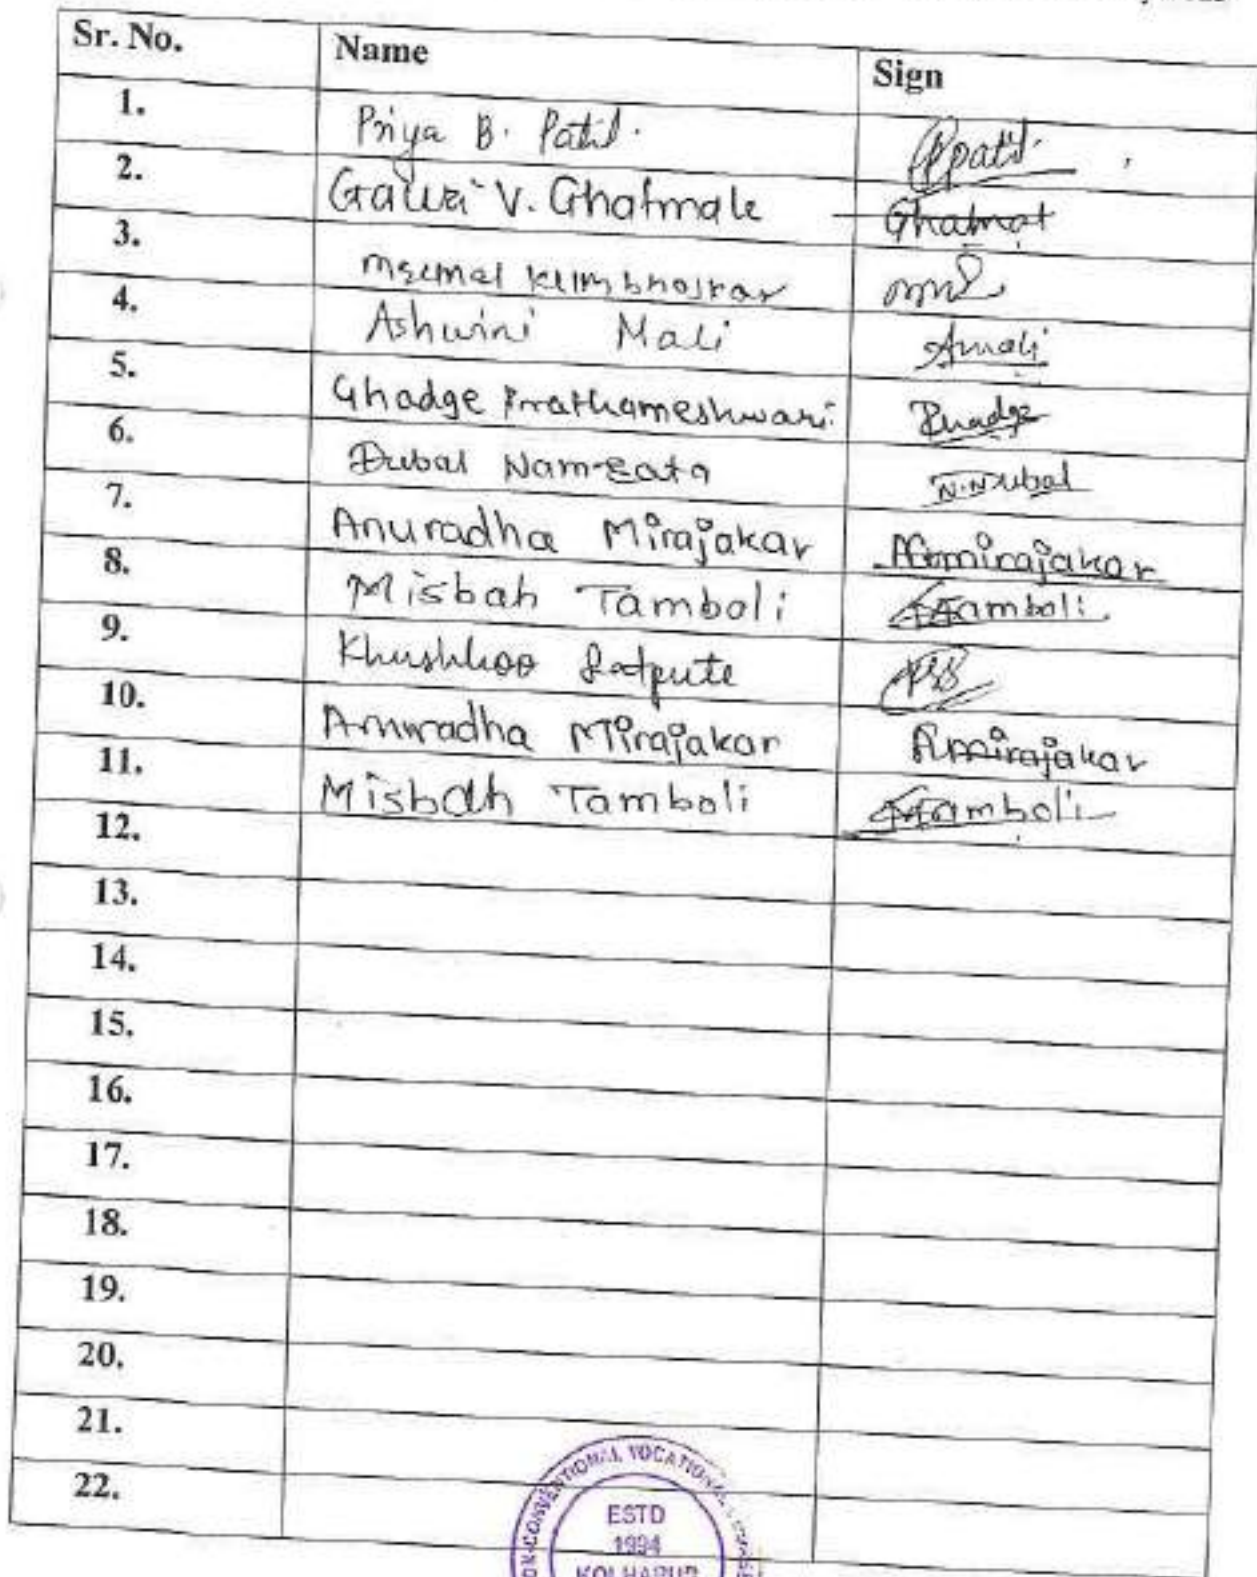 Sr. No. Name Sign
1. Priya B. Patil. Ppatil.
2. Gauri V. Ghatmale Ghatmal
3. Mrunal Kumbhojkar
4. Ashwini Mali Amali
5. Ghadge Prathameshwari. Ghadge
6. Dubal Namrata N.N.Dubal
7. Anuradha Mirajakar Amirajakar
8. Misbah Tamboli Tamboli.
9. Khushboo Satpute
10. Anuradha Mirajakar Amirajakar
11. Misbah Tamboli Tamboli
12.
13.
14.
15.
16.
17.
18.
19.
20.
21.
22.
CONVENTIONAL VOCATIONAL
ESTD
1994
KOLHAPUR